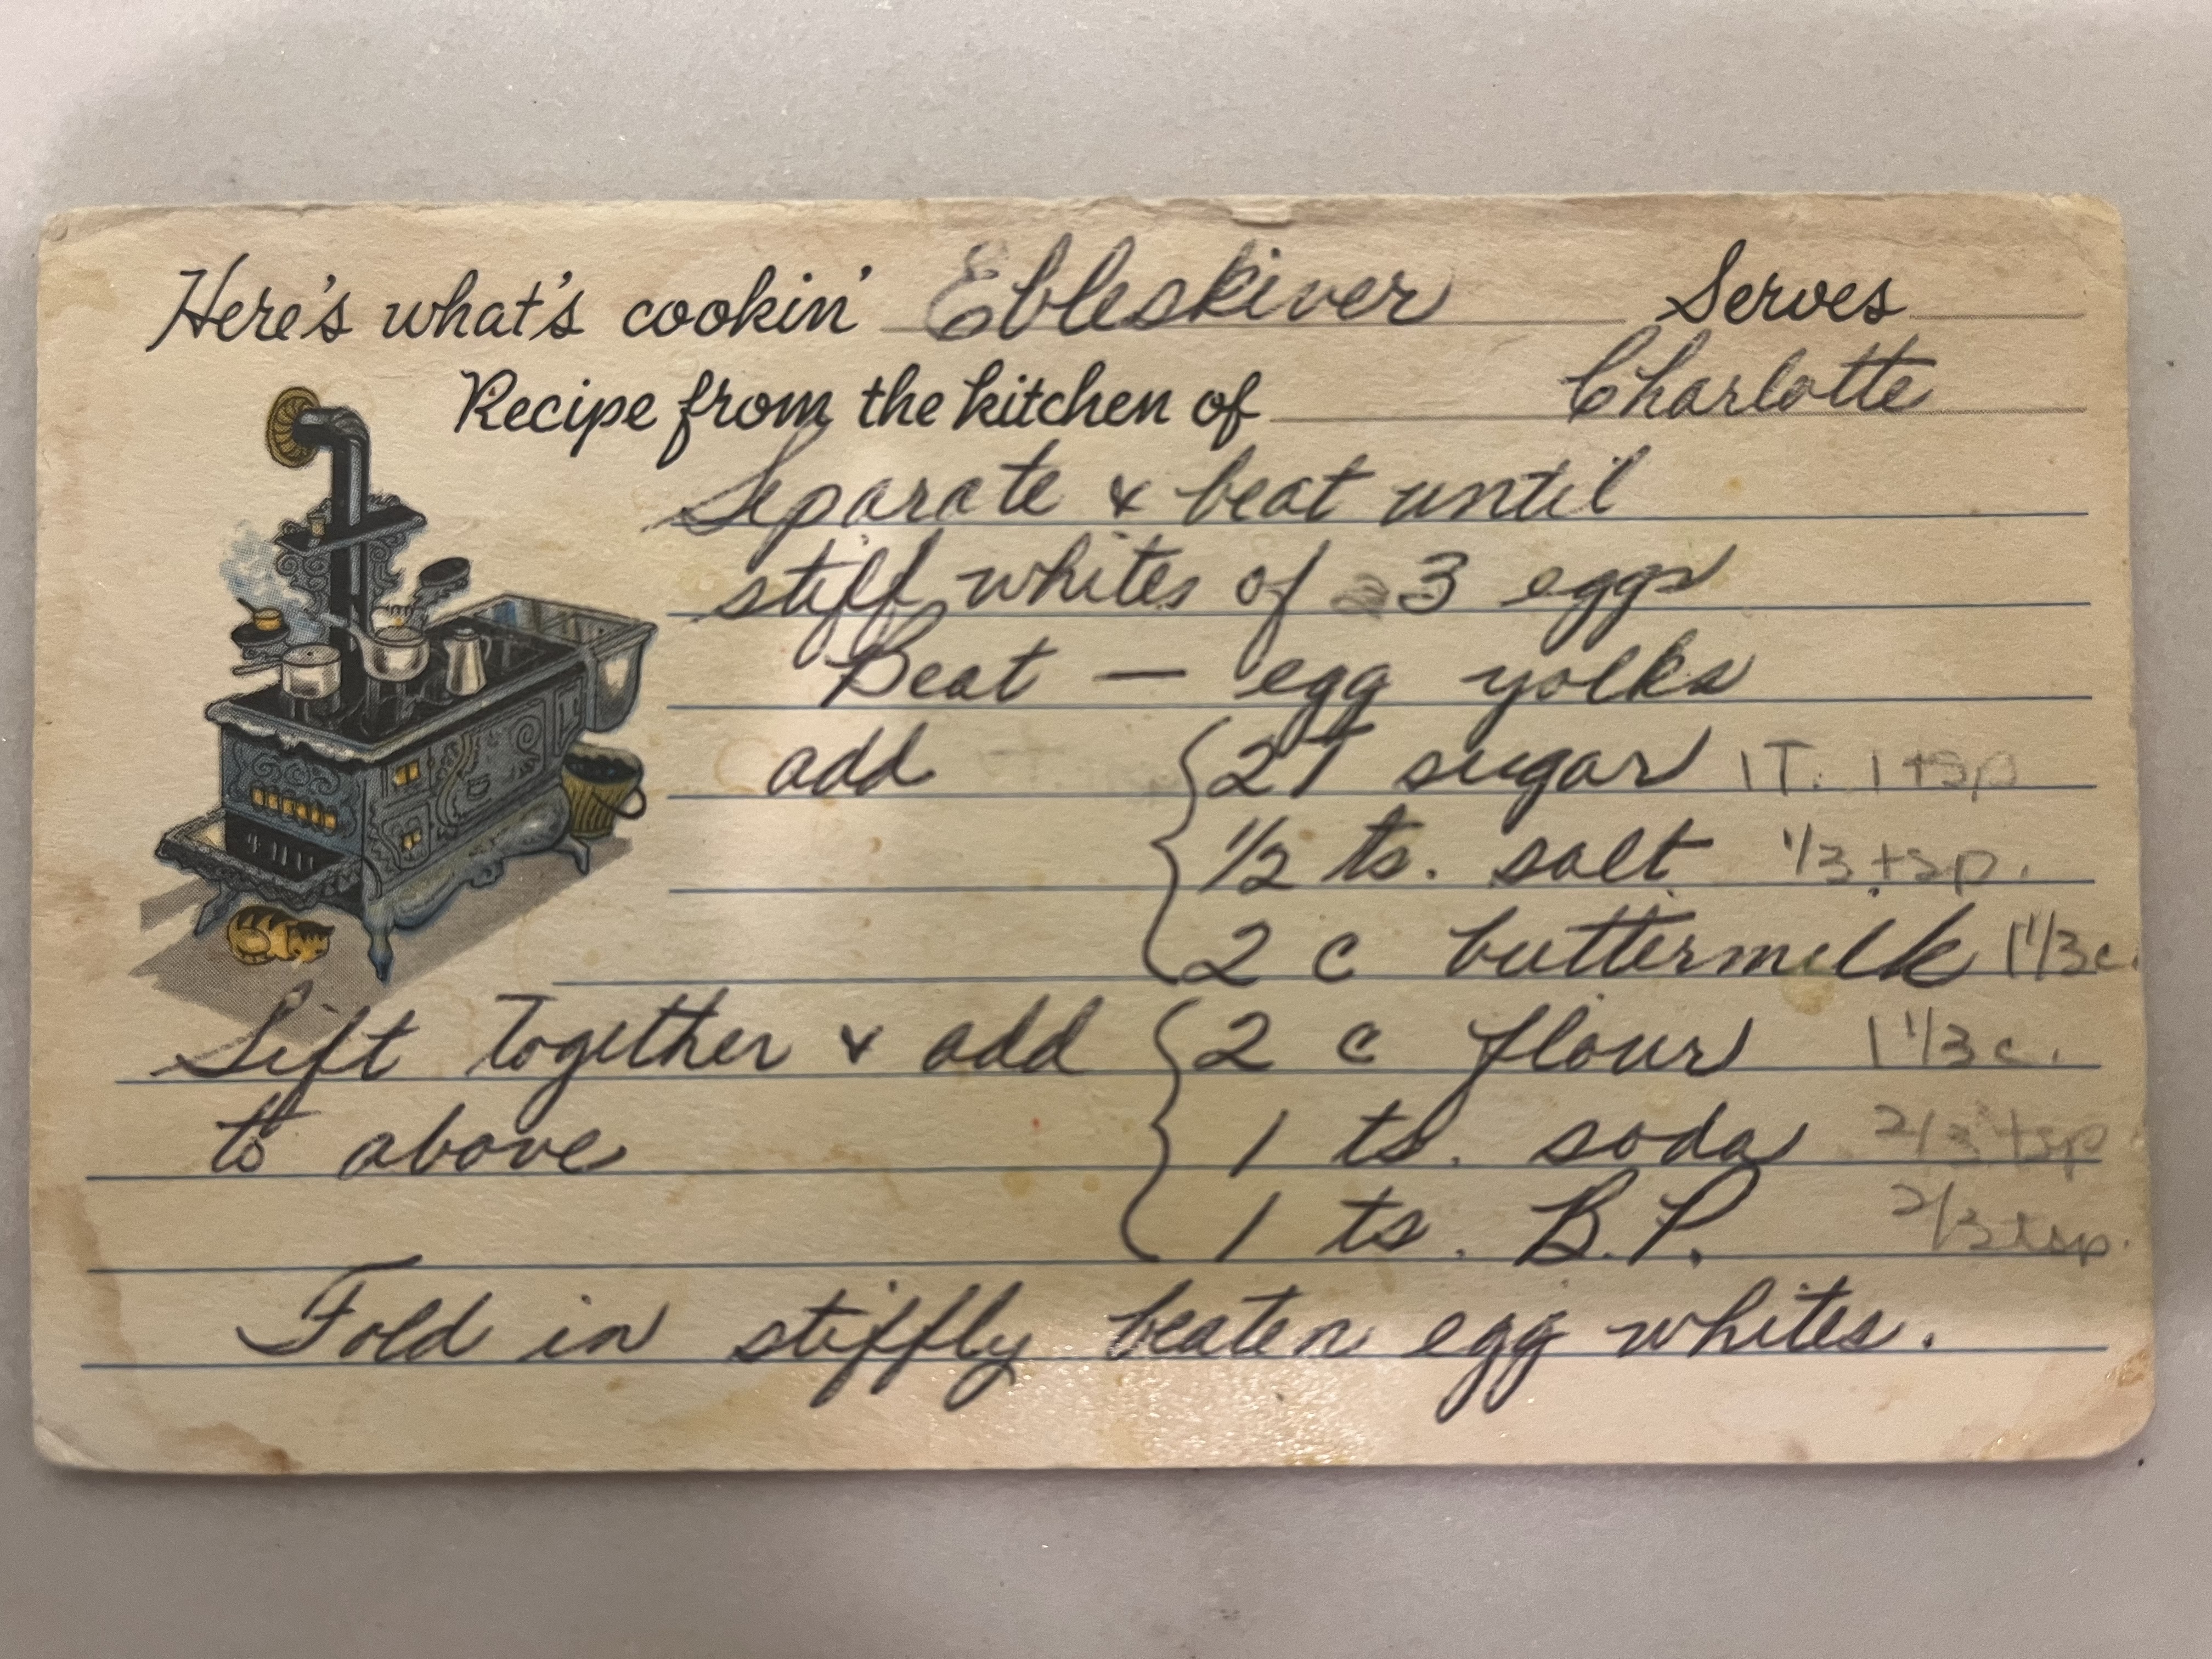 Here's what's cookin' Ebleskiver Serves
Recipe from the kitchen of Charlotte
Separate & beat until
stiff whites of 3 eggs
Beat — egg yolks
add { 2T sugar 1T. 1 tsp
1/2 ts. salt 1/3 tsp.
2 c buttermilk 1 1/3 c.
Sift together & add { 2 c flour 1 1/3 c.
to above 1 ts. soda 2/3 tsp
1 ts. B.P. 2/3 tsp.
Fold in stiffly beaten egg whites.